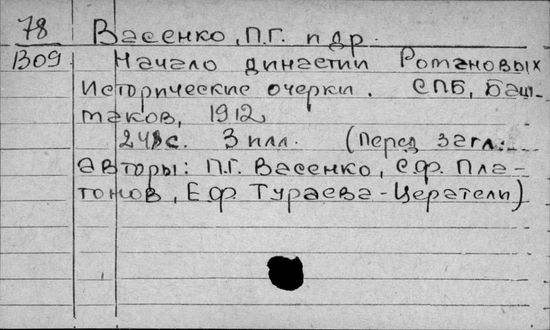 78 Васенко, П.Г. и др.
В09 Начало династии Романовых
Исторические очерки. СПБ, Баш-
маков, 1912
248с. 3 илл. (Перед загл.:
авторы: П.Г. Васенко, С.Ф. Пла-
тонов, Е.Ф. Тураева-Церетели)